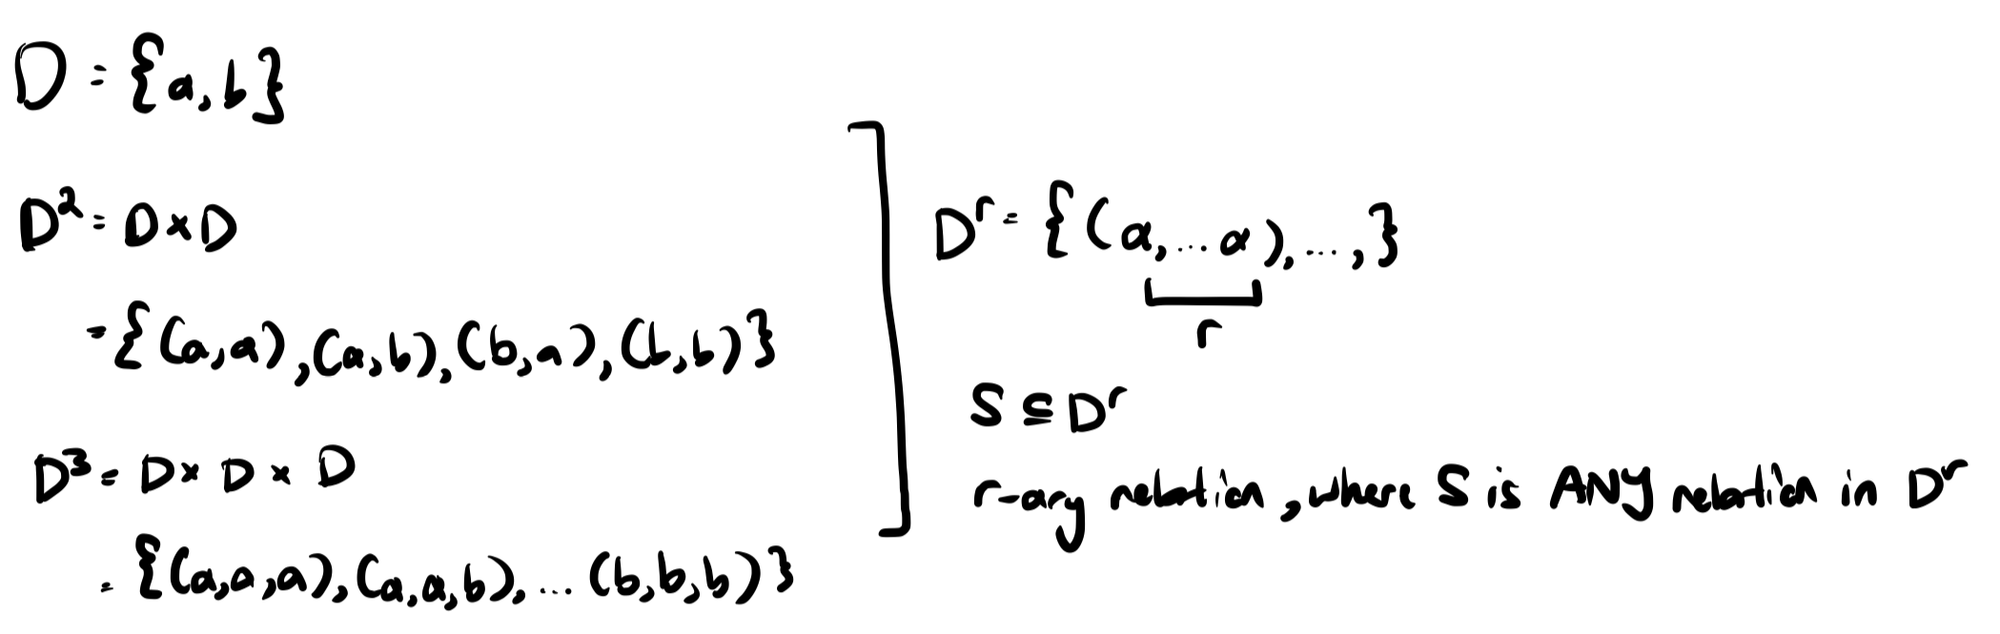 D = {a, b}
D² = D × D
= {(a,a), (a,b), (b,a), (b,b)}
D³ = D × D × D
= {(a,a,a), (a,a,b), ... (b,b,b)}
Dʳ = {(a, ... a), ..., }
r
S ⊆ Dʳ
r-ary relation, where S is ANY relation in Dʳ